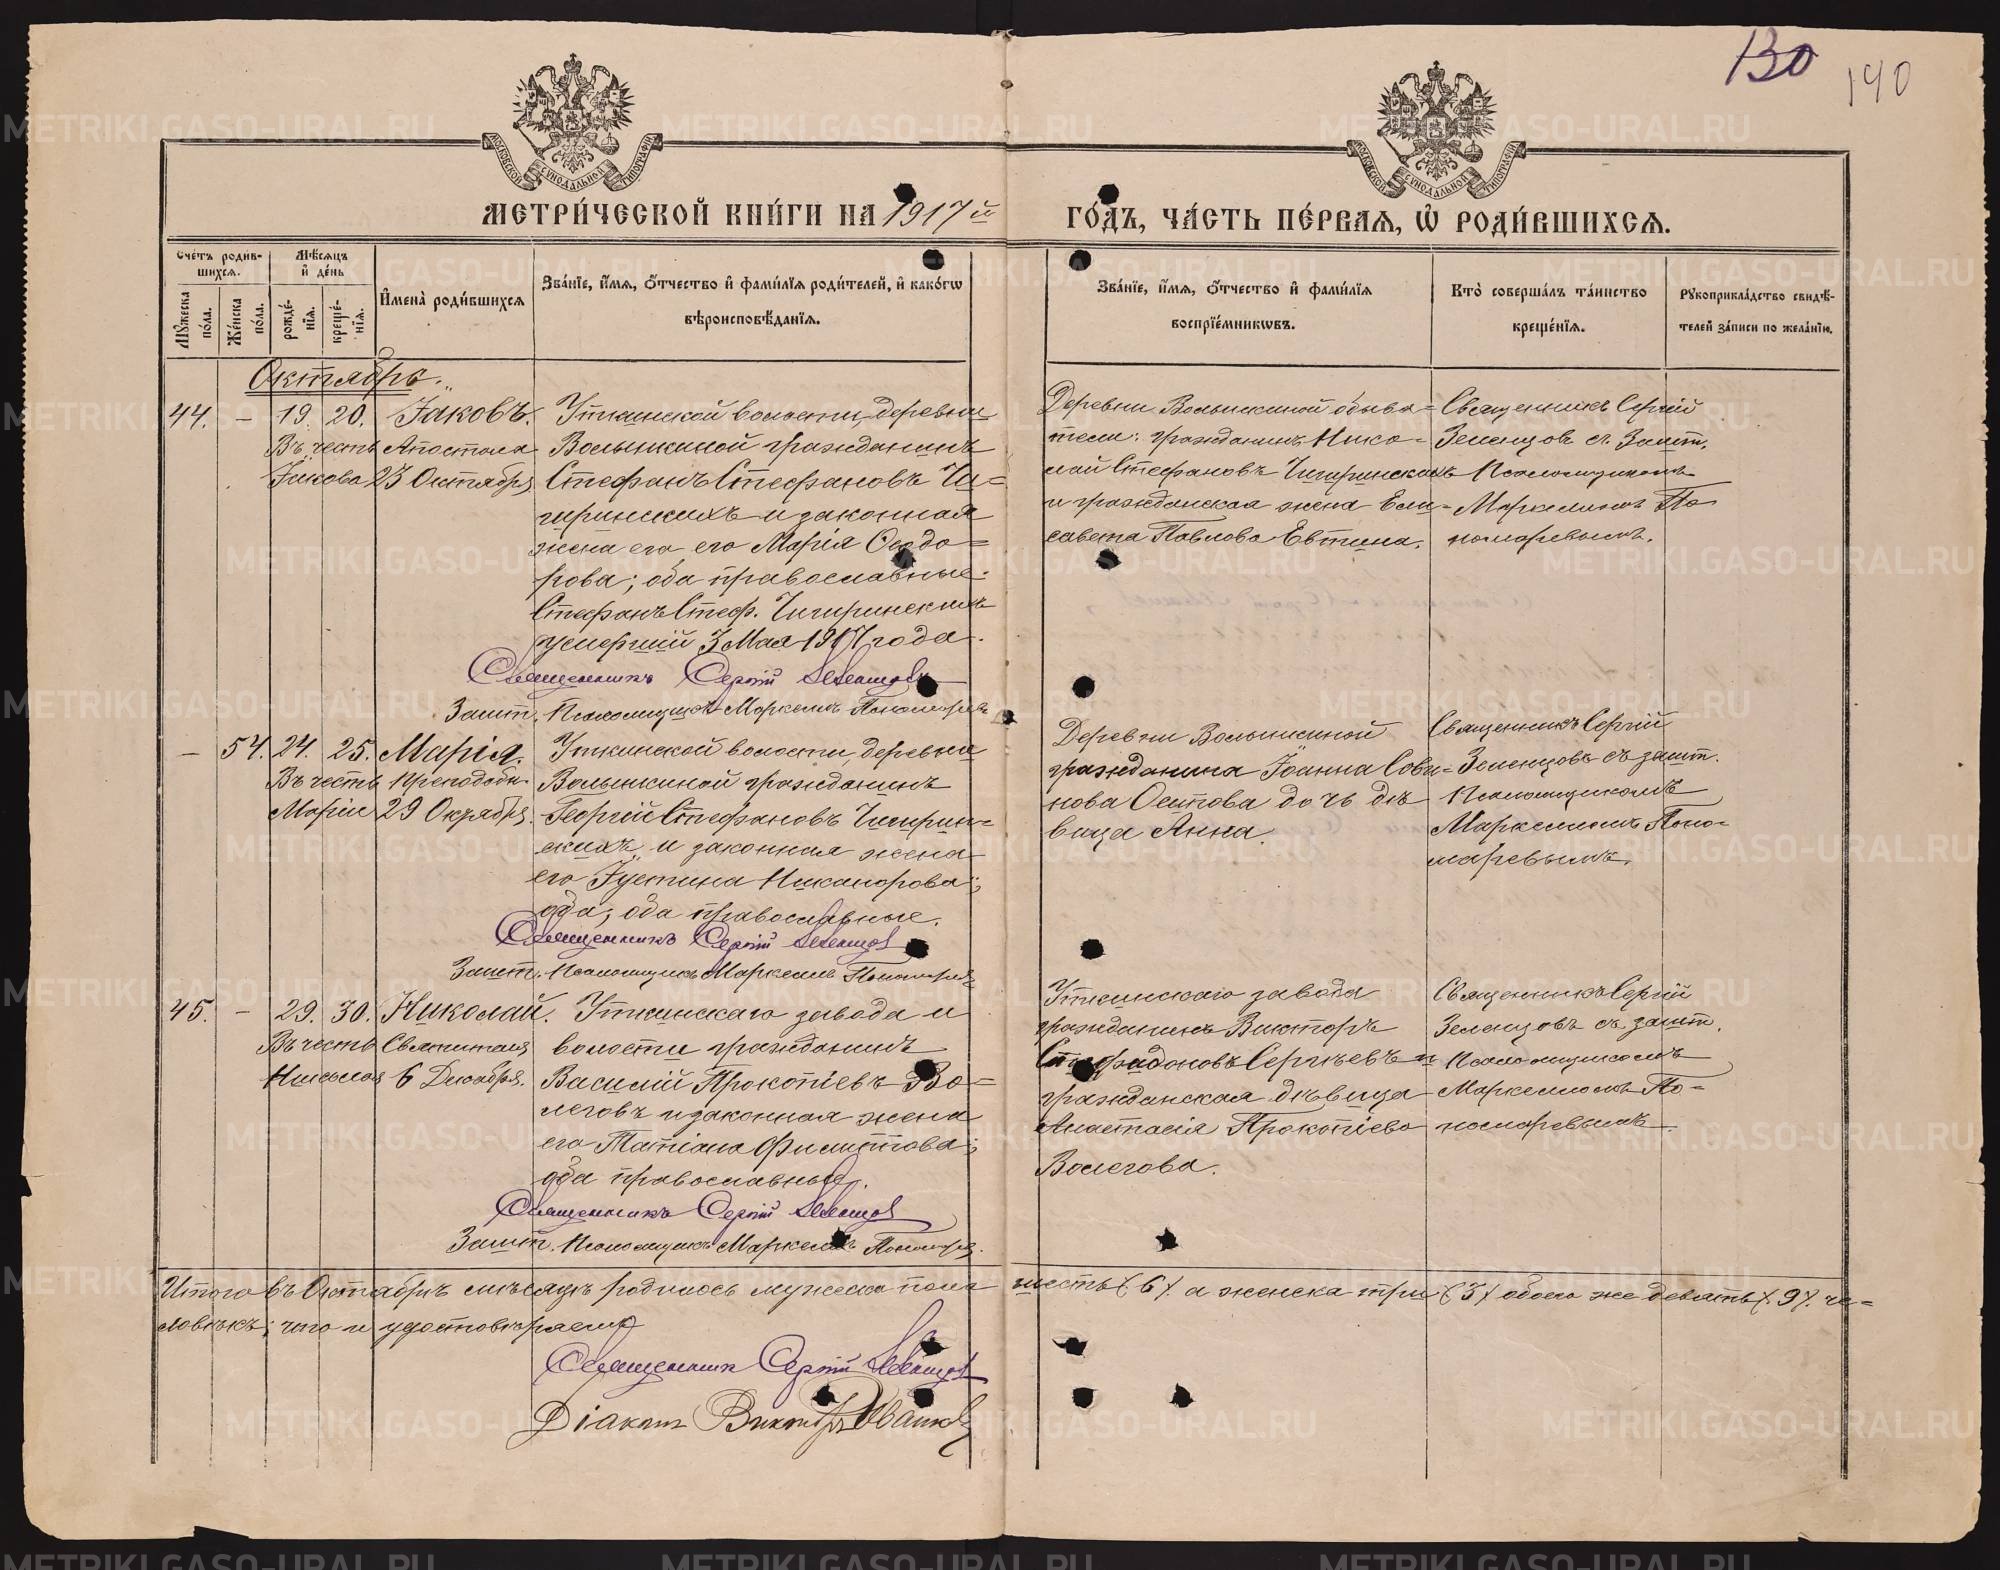 130
140
МОСКОВСКОЙ СУНОДАЛЬНОЙ ТИПОГРАФІИ
МОСКОВСКОЙ СУНОДАЛЬНОЙ ТИПОГРАФІИ
МЕТРИ́ЧЕСКОЙ КНИ́ГИ НА 1917й ГО́ДЪ, ЧА́СТЬ ПЕ́РВАЯ, Ѡ РОДИ́ВШИХСЯ.
Сче́тъ роди́в-
шихся.
Мѣ́сяцъ
и де́нь
Му́жеска
по́ла.
Же́нска
по́ла.
рожде́-
нія.
креще́-
нія.
Имена̀ роди́вшихся
Зва́ніе, и́мя, о́тчество и фами́лія роди́телей, и како́гѡ
вѣроисповѣ́данія.
Зва́ніе, и́мя, о́тчество и фами́лія
воспріе́мникѡвъ.
Кто̀ соверша́лъ та́инство
креще́нія.
Рукоприкла́дство свидѣ́-
телей за́писи по жела́нію.
Октябрь.
44. – 19. 20. Іаковъ.
Въ честь Апостола
Іакова 23 Октября
Уткинской волости, деревни
Волыниной гражданинъ
Стефанъ Стефановъ Чи-
гиринскихъ и законная
жена его его Марія Сидо-
рова; оба православные.
Стефанъ Стеф. Чигиринскихъ
умершій 3 Мая 1917 года.
Священникъ Сергій Зеленцовъ
Зашт. Псаломщикъ Маркеллъ Пономаревъ
Деревни Волыниной обыва-
тели: гражданинъ Нико-
лай Стефановъ Чигиринскихъ
и гражданская жена Ели-
савета Павлова Евтина.
Священникъ Сергій
Зеленцовъ съ Зашт.
Псаломщикомъ
Маркелломъ По-
номаревымъ.
– 54. 24. 25. Марія.
Въ честь Преподобн.
Маріи 29 Окрября.
Уткинской волости, деревни
Волыниной гражданинъ
Георгій Стефановъ Чигирин-
скихъ и законная жена
его Іустина Никанорова;
оба; оба православные.
Священникъ Сергій Зеленцовъ
Зашт. Псаломщикъ Маркеллъ Пономаревъ
Деревни Волыниной
гражданина Іоанна Сови-
нова Осипова дочь дѣ-
вица Анна.
Священникъ Сергій
Зеленцовъ съ зашт.
Псаломщикомъ
Маркелломъ Поно-
маревымъ.
45. – 29. 30. Николай.
Въ честь Святителя
Николая 6 Декабря.
Уткинскаго завода и
волости гражданинъ
Василій Прокопіевъ Во-
леговъ и законная жена
его Татіана Филиппова;
оба православные.
Священникъ Сергій Зеленцовъ
Зашт. Псаломщикъ Маркеллъ Пономарев.
Уткинскаго завода
гражданинъ Викторъ
Спиридоновъ Сергѣевъ и
гражданская дѣвица
Анастасія Прокопіева
Волегова.
Священникъ Сергій
Зеленцовъ съ зашт.
Псаломщикомъ
Маркелломъ По-
номаревымъ.
Итого въ Октябрѣ мѣсяцѣ родилось мужеска пола шесть (6) а женска три (3) обоего же девять (9) че-
ловѣкъ; что и удостовѣряемъ
Священникъ Сергій Зеленцовъ
Діаконъ Викторъ Иванов